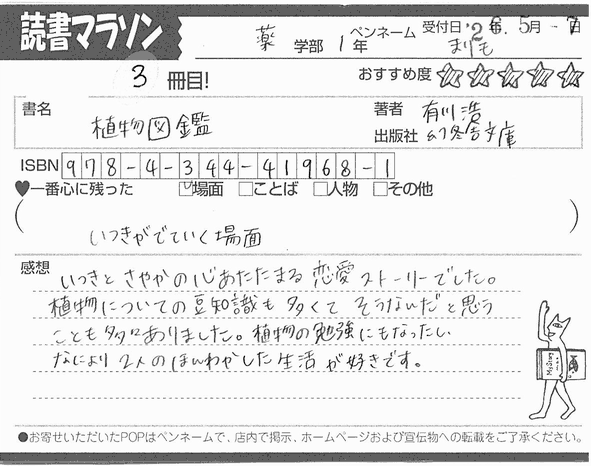 読書マラソン
薬 学部 1年 ペンネーム まりも 受付日 '26.5月-7日
3 冊目!
おすすめ度 ☆☆☆☆☆
書名 植物図鑑
著者 有川浩
出版社 幻冬舎文庫
ISBN 978-4-344-41968-1
♥一番心に残った □場面 □ことば □人物 □その他
(いつきがでていく場面)
感想
いつきとさやかの心あたたまる恋愛ストーリーでした。
植物についての豆知識も多くてそうなんだと思う
ことも多々ありました。植物の勉強にもなったし
なにより2人のほんわかした生活が好きです。
●お寄せいただいたPOPはペンネームで、店内で掲示、ホームページおよび宣伝物への転載をご了承ください。